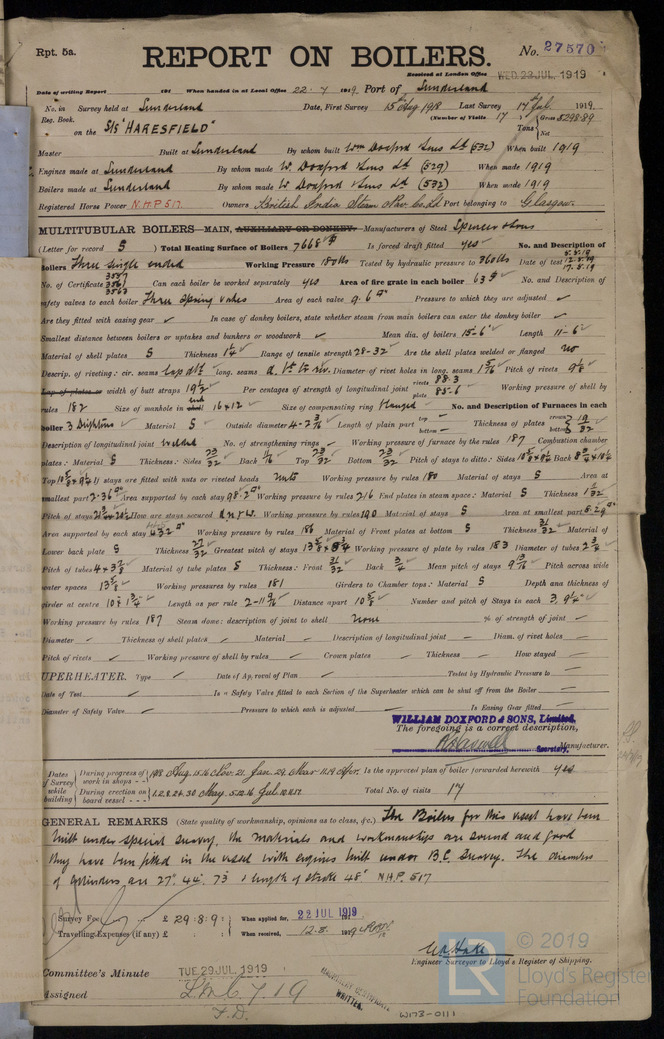 Rpt. 5a.
REPORT ON BOILERS.
No. 27570
Received at London Office WED. 23 JUL 1919
Date of writing Report 191 When handed in at Local Office 22 . 7 1919 Port of Sunderland
No. in Survey held at Sunderland Date, First Survey 15th Aug 1918 Last Survey 17th Jul. 1919
Reg. Book. (Number of Visits 17 ) Gross 5298.89
on the S/S "HARESFIELD" Tons Net
Master Built at Sunderland By whom built Wm Doxford & Sons Ld (532) When built 1919
Engines made at Sunderland By whom made W. Doxford & Sons Ld (529) When made 1919
Boilers made at Sunderland By whom made W. Doxford & Sons Ld (532) When made 1919
Registered Horse Power N.H.P 517 Owners British India Steam Nav. Co. Ld Port belonging to Glasgow
MULTITUBULAR BOILERS – MAIN, AUXILIARY OR DONKEY.– Manufacturers of Steel Spencer & Sons
(Letter for record S ) Total Heating Surface of Boilers 7668 Is forced draft fitted yes No. and Description of
Boilers Three single ended Working Pressure 180 lbs Tested by hydraulic pressure to 360 lbs Date of test 5.5.19 12.5.19 17.5.19
No. of Certificate 3557 3561 3563 Can each boiler be worked separately yes Area of fire grate in each boiler 63 No. and Description of
safety valves to each boiler Three Spring valves Area of each valve 9.6 Pressure to which they are adjusted ✓
Are they fitted with easing gear ✓ In case of donkey boilers, state whether steam from main boilers can enter the donkey boiler ✓
Smallest distance between boilers or uptakes and bunkers or woodwork ✓ Mean dia. of boilers 15-6" Length 11-6"
Material of shell plates S Thickness 1 1/4 Range of tensile strength 28-32 Are the shell plates welded or flanged no
Descrip. of riveting: cir. seams lap dble long. seams Diameter of rivet holes in long. seams 1 5/16 Pitch of rivets 9 1/8
Lap of plates or width of butt straps 19 1/2 Per centages of strength of longitudinal joint rivets 88.3 plate 85.6 Working pressure of shell by
rules 182 Size of manhole in end shell 16 x 12 Size of compensating ring flanged No. and Description of Furnaces in each
boiler 3 Deightons Material S Outside diameter 4-2 3/16 Length of plain part top bottom Thickness of plates crown bottom 19/32
Description of longitudinal joint welded No. of strengthening rings – Working pressure of furnace by the rules 187 Combustion chamber
plates: Material S Thickness: Sides 23/32 Back 11/16 Top 23/32 Bottom 23/32 Pitch of stays to ditto: Sides Back
Top If stays are fitted with nuts or riveted heads nuts Working pressure by rules 180 Material of stays S Area at
smallest part 2.36 Area supported by each stay 98.2 Working pressure by rules 216 End plates in steam space: Material S Thickness 1 5/32
Pitch of stays How are stays secured Working pressure by rules 190 Material of stays S Area at smallest part
Area supported by each stay 432 Working pressure by rules 186 Material of Front plates at bottom S Thickness 31/32 Material of
Lower back plate S Thickness 27/32 Greatest pitch of stays Working pressure of plate by rules 183 Diameter of tubes 2 3/4
Pitch of tubes 4 x 3 7/8 Material of tube plates S Thickness: Front 31/32 Back 3/4 Mean pitch of stays Pitch across wide
water spaces 13 5/8 Working pressures by rules 181 Girders to Chamber tops: Material S Depth and thickness of
girder at centre 10 x 1 3/4 Length as per rule 2-11 9/16 Distance apart 10 5/8 Number and pitch of Stays in each 3, 9 1/4"
Working pressure by rules 187 Steam dome: description of joint to shell none % of strength of joint –
Diameter ✓ Thickness of shell plates ✓ Material – Description of longitudinal joint – Diam. of rivet holes –
Pitch of rivets ✓ Working pressure of shell by rules ✓ Crown plates – Thickness – How stayed –
UPERHEATER. Type ✓ Date of Approval of Plan ✓ Tested by Hydraulic Pressure to –
Date of Test Is a Safety Valve fitted to each Section of the Superheater which can be shut off from the Boiler –
Diameter of Safety Valve – Pressure to which each is adjusted – Is Easing Gear fitted –
WILLIAM DOXFORD & SONS, Limited.
The foregoing is a correct description,
Secretary. Manufacturer.
Dates of Survey while building
During progress of work in shops - - 1918 Aug. 15.16 Nov. 21 Jan. 29. Mar 11.19 Apr. Is the approved plan of boiler forwarded herewith yes
During erection on board vessel - - - 1.2.8.24.30 May. 5.12.16 Jul 10.11.17. Total No. of visits 17
GENERAL REMARKS (State quality of workmanship, opinions as to class, &c.) The Boilers for this vessel have been
built under special survey, the materials and workmanship are sound and good
they have been fitted in the vessel with engines built under B.C. Survey. The diameters
of cylinders are 27" 44" 73" & length of stroke 48" N.H.P. 517
Survey Fee £ 29 : 8 : 9 : When applied for, 22 JUL 1919
Travelling Expenses (if any) £ : : When received, 12.8. 1919
Engineer Surveyor to Lloyd's Register of Shipping.
Committee's Minute TUE. 29 JUL. 1919
Assigned L.M.C. 7.19
F.D.
MACHINERY CERTIFICATE
WRITTEN.
© 2019
LR Lloyd's Register
Foundation
W173-0111